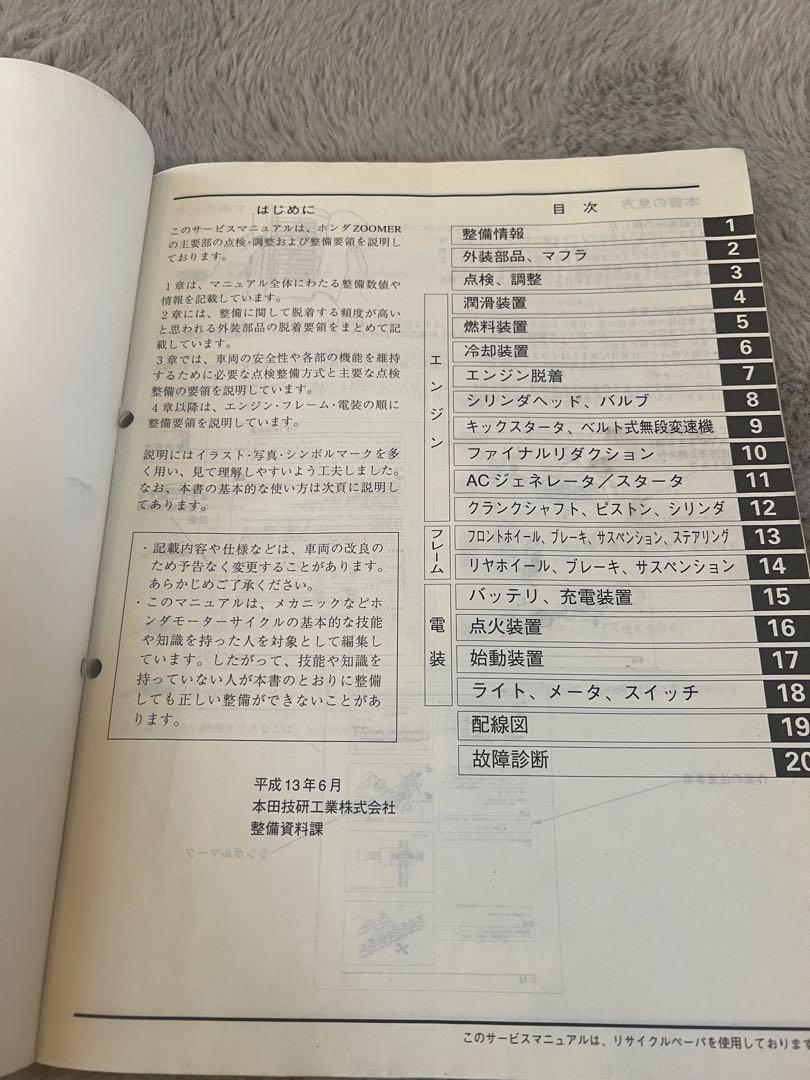 はじめに
このサービスマニュアルは、ホンダZOOMER
の主要部の点検・調整および整備要領を説明し
ております。
1章は、マニュアル全体にわたる整備数値や
情報を記載しています。
2章には、整備に関して脱着する頻度が高い
と思われる外装部品の脱着要領をまとめて記
載しています。
3章では、車両の安全性や各部の機能を維持
するために必要な点検整備方式と主要な点検
整備の要領を説明しています。
4章以降は、エンジン・フレーム・電装の順に
整備要領を説明しています。
説明にはイラスト・写真・シンボルマークを多
く用い、見て理解しやすいよう工夫しました。
なお、本書の基本的な使い方は次頁に説明し
てあります。
・記載内容や仕様などは、車両の改良の
ため予告なく変更することがあります。
あらかじめご了承ください。
・このマニュアルは、メカニックなどホ
ンダモーターサイクルの基本的な技能
や知識を持った人を対象として編集し
ています。したがって、技能や知識を
持っていない人が本書のとおりに整備
しても正しい整備ができないことがあ
ります。
平成13年6月
本田技研工業株式会社
整備資料課
目 次
整備情報 1
外装部品、マフラ 2
点検、調整 3
エンジン
潤滑装置 4
燃料装置 5
冷却装置 6
エンジン脱着 7
シリンダヘッド、バルブ 8
キックスタータ、ベルト式無段変速機 9
ファイナルリダクション 10
ACジェネレータ/スタータ 11
クランクシャフト、ピストン、シリンダ 12
フレーム
フロントホイール、ブレーキ、サスペンション、ステアリング 13
リヤホイール、ブレーキ、サスペンション 14
電装
バッテリ、充電装置 15
点火装置 16
始動装置 17
ライト、メータ、スイッチ 18
配線図 19
故障診断 20
このサービスマニュアルは、リサイクルペーパを使用しております